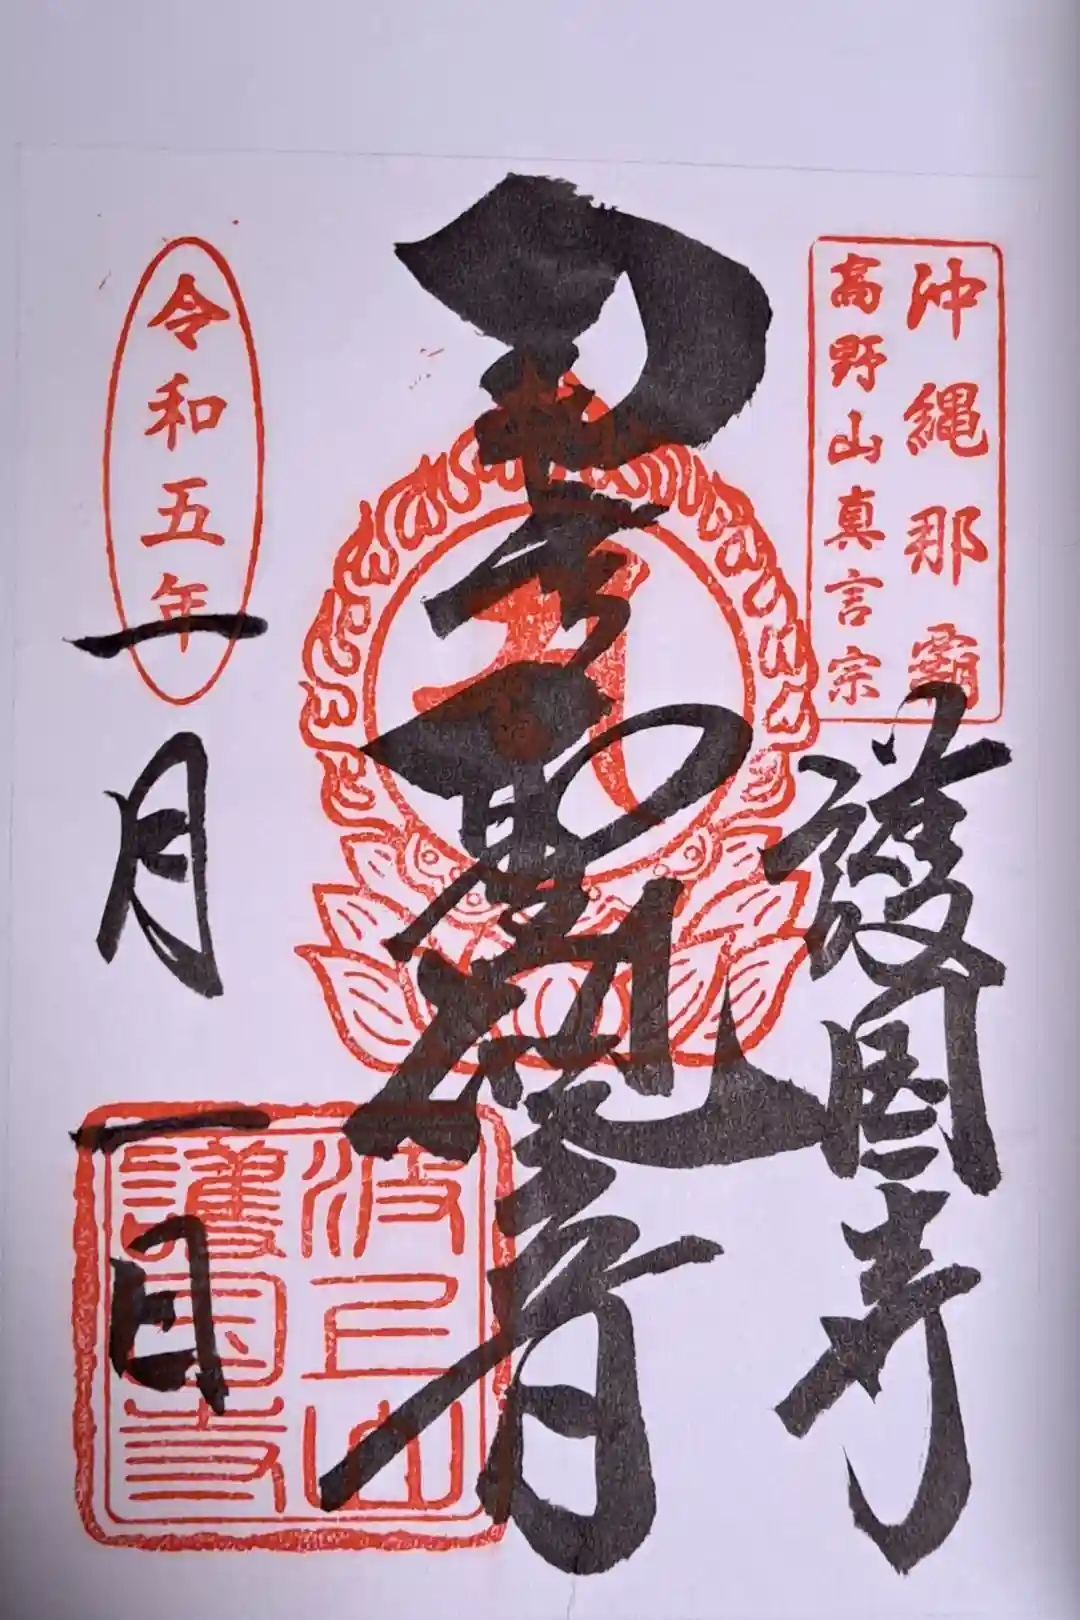 沖縄那覇
高野山真言宗
護国寺
聖観音
令和五年
一月一日
波上山
護国寺